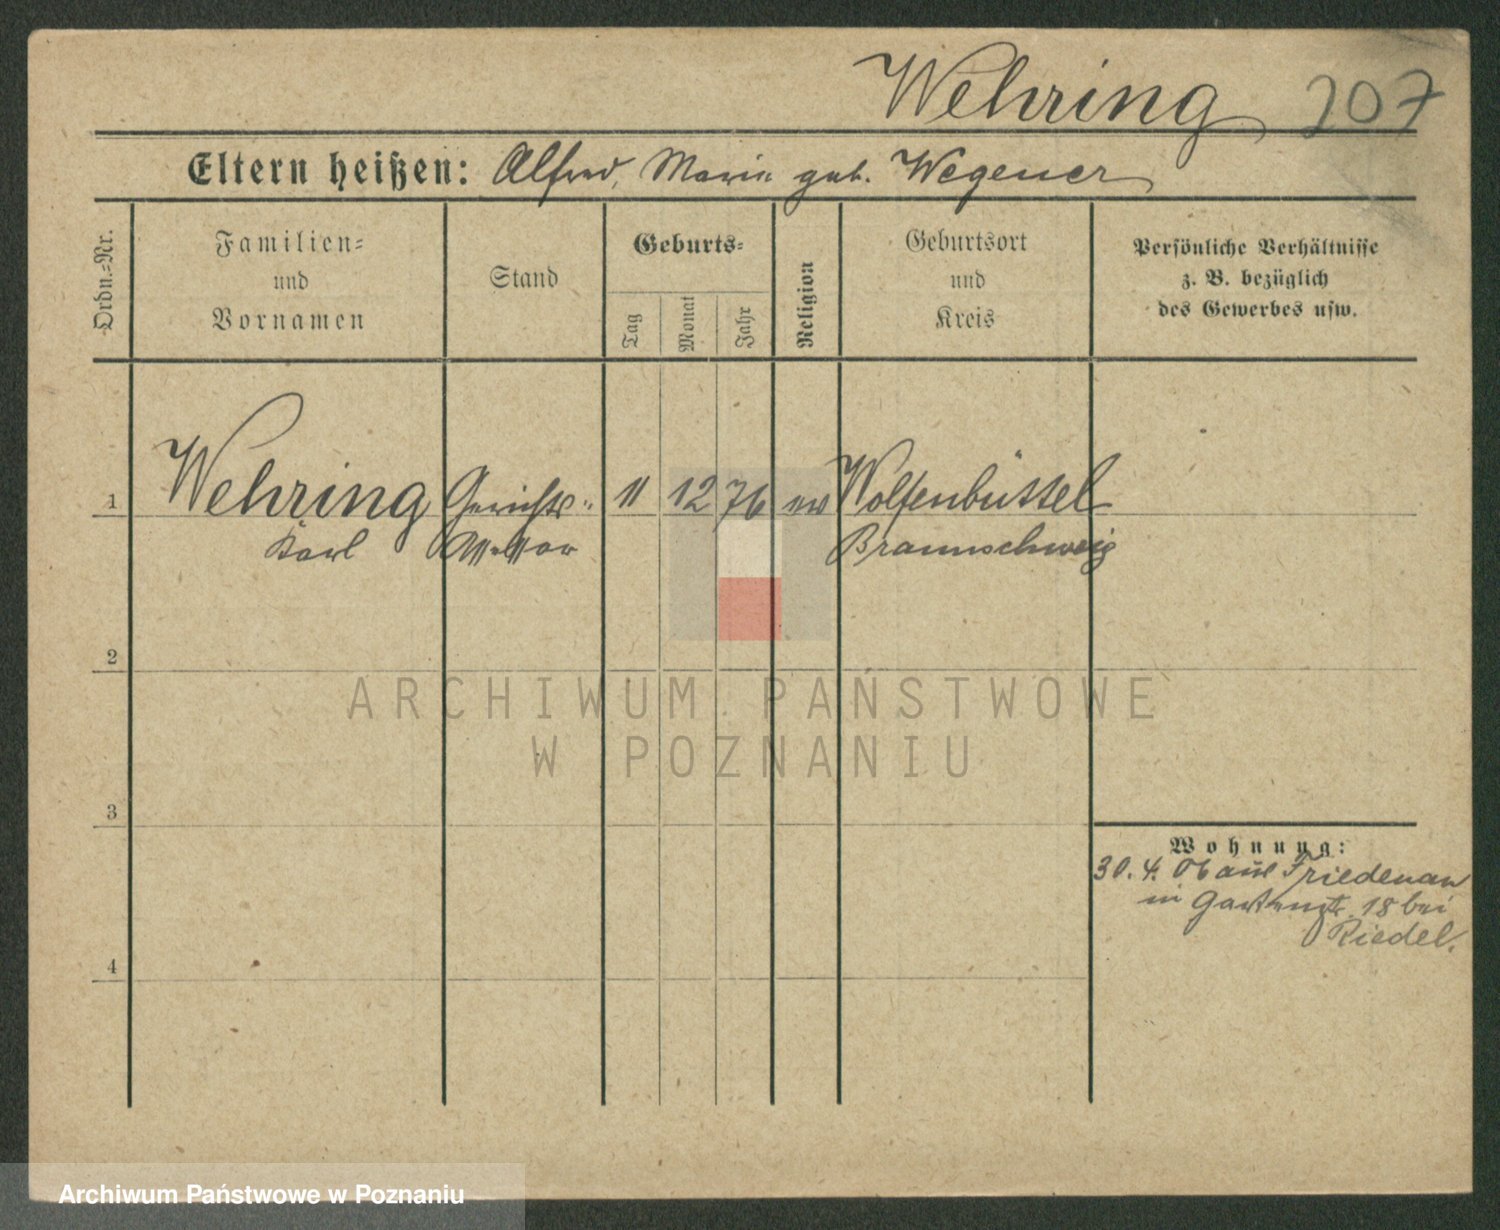 Wehring 207
Eltern heißen: Alfred, Marie geb. Wegener
Ordn.-Nr.
Familien-
und
Vornamen
Stand
Geburts-
Tag
Monat
Jahr
Religion
Geburtsort
und
Kreis
Persönliche Verhältnisse
z. B. bezüglich
des Gewerbes usw.
1 Wehring Gerichts- 11 12 76 ev Wolfenbüttel
Karl Assessor Braunschweig
2
ARCHIWUM PAŃSTWOWE
W POZNANIU
3
Wohnung:
30. 4. 06 aus Friedenau
in Gartenstr. 18 bei
Riedel.
4
Archiwum Państwowe w Poznaniu